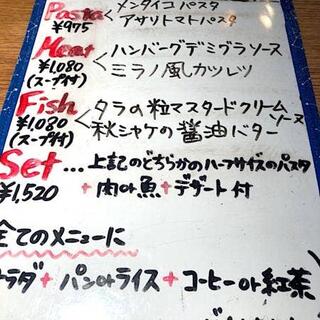 Pasta メンタイコパスタ
¥975 アサリトマトパスタ
Meat ハンバーグデミグラソース
¥1,080 ミラノ風カツレツ
(スープ付)
Fish タラの粒マスタードクリームソース
¥1,080 秋シャケの醤油バター
(スープ付)
Set ... 上記のどちらかのハーフサイズのパスタ
¥1,520 +肉or魚+デザート付
全てのメニューに
サラダ+パンorライス+コーヒーor紅茶